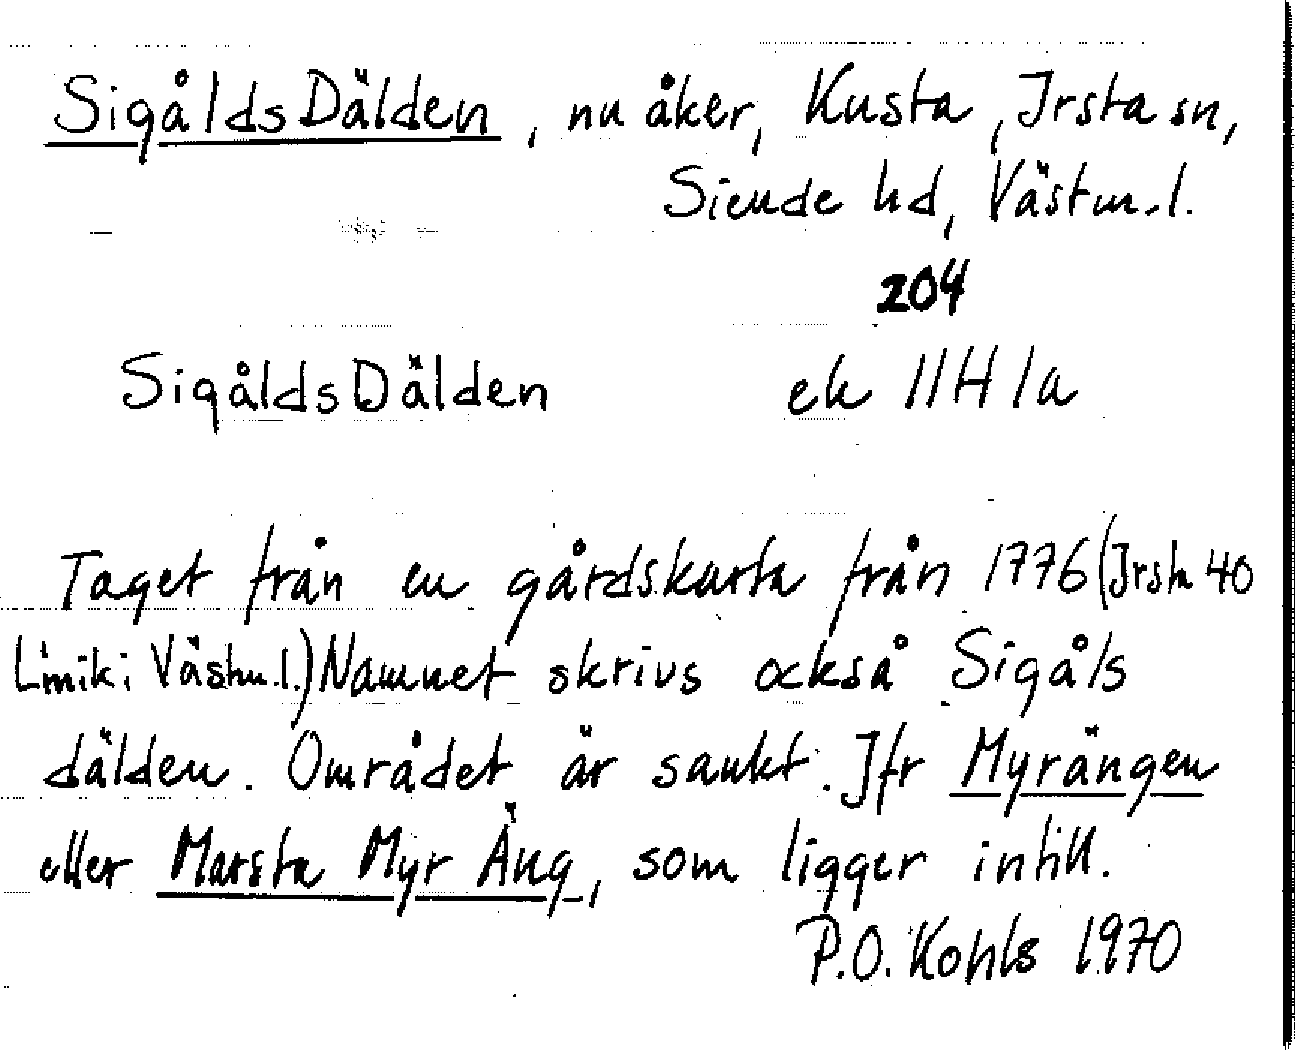 SigåldsDälden, nu åker, Kusta, Irsta sn,
Siende hd, Västm.l.
204
SigåldsDälden ek 11H 1a
Taget från en gårdskarta från 1776 (Irsta 40
Lmik i Västm.l.) Namnet skrivs också Sigåls
dälden. Området är sankt. Jfr Myrängen
eller Marsta Myr Äng, som ligger intill.
P.O. Kohls 1970